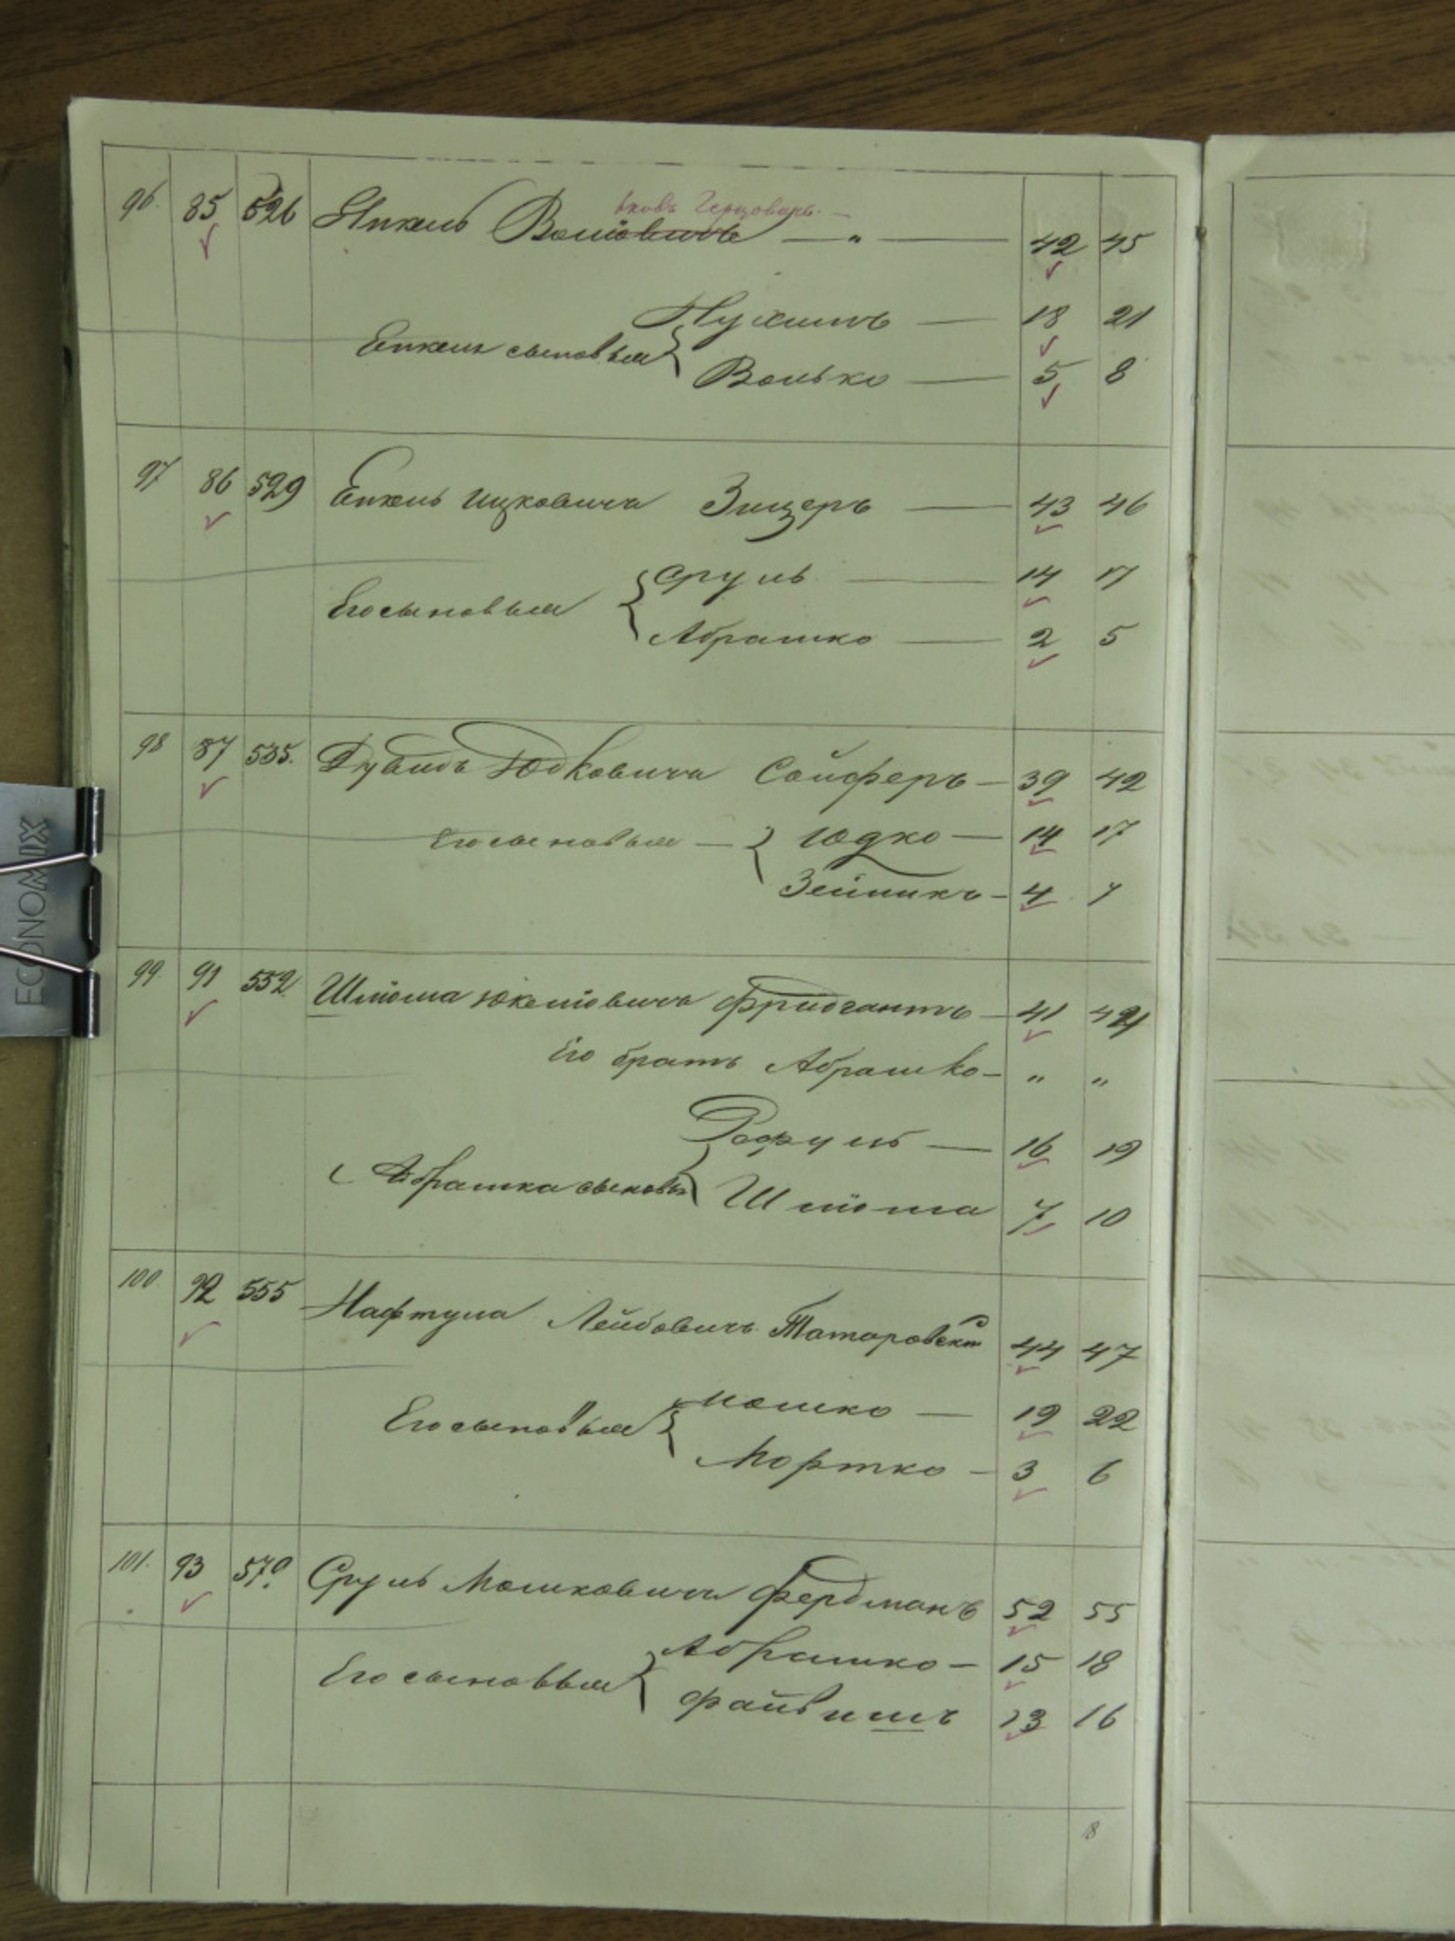 96 85 526 Янкель Вольовичъ — „ — 42 45
Нухимъ — 18 21
Енкеля сыновья
Волько — 5 8
97 86 529 Енкель Ицковичъ Зицеръ — 43 46
Сруль — 14 17
Его сыновья
Абрашко — 2 5
98 87 535. Дувидъ Юдковичъ Сойферъ — 39 42
Его сыновья — Юдко — 14 17
Зейликъ — 4 7
99 91 552. Шлiома Юкелiовичъ Фридгантъ — 41 44
Его братъ Абрашко — „ „
Рафуль — 16 19
Абрашка сыновья
Шлiома 7 10
100 92 555 Нафтула Лейбовичъ Татаровскiй 44 47
Мошко — 19 22
Его сыновья
Мортко — 3 6
101. 93 570. Сруль Мошковичъ Фердманъ 52 55
Абрашко — 15 18
Его сыновья
Файвишъ 13 16
18
ECONOMIX